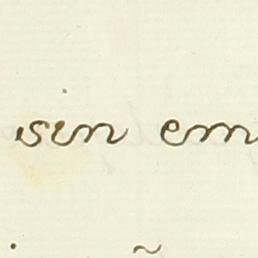 sin em